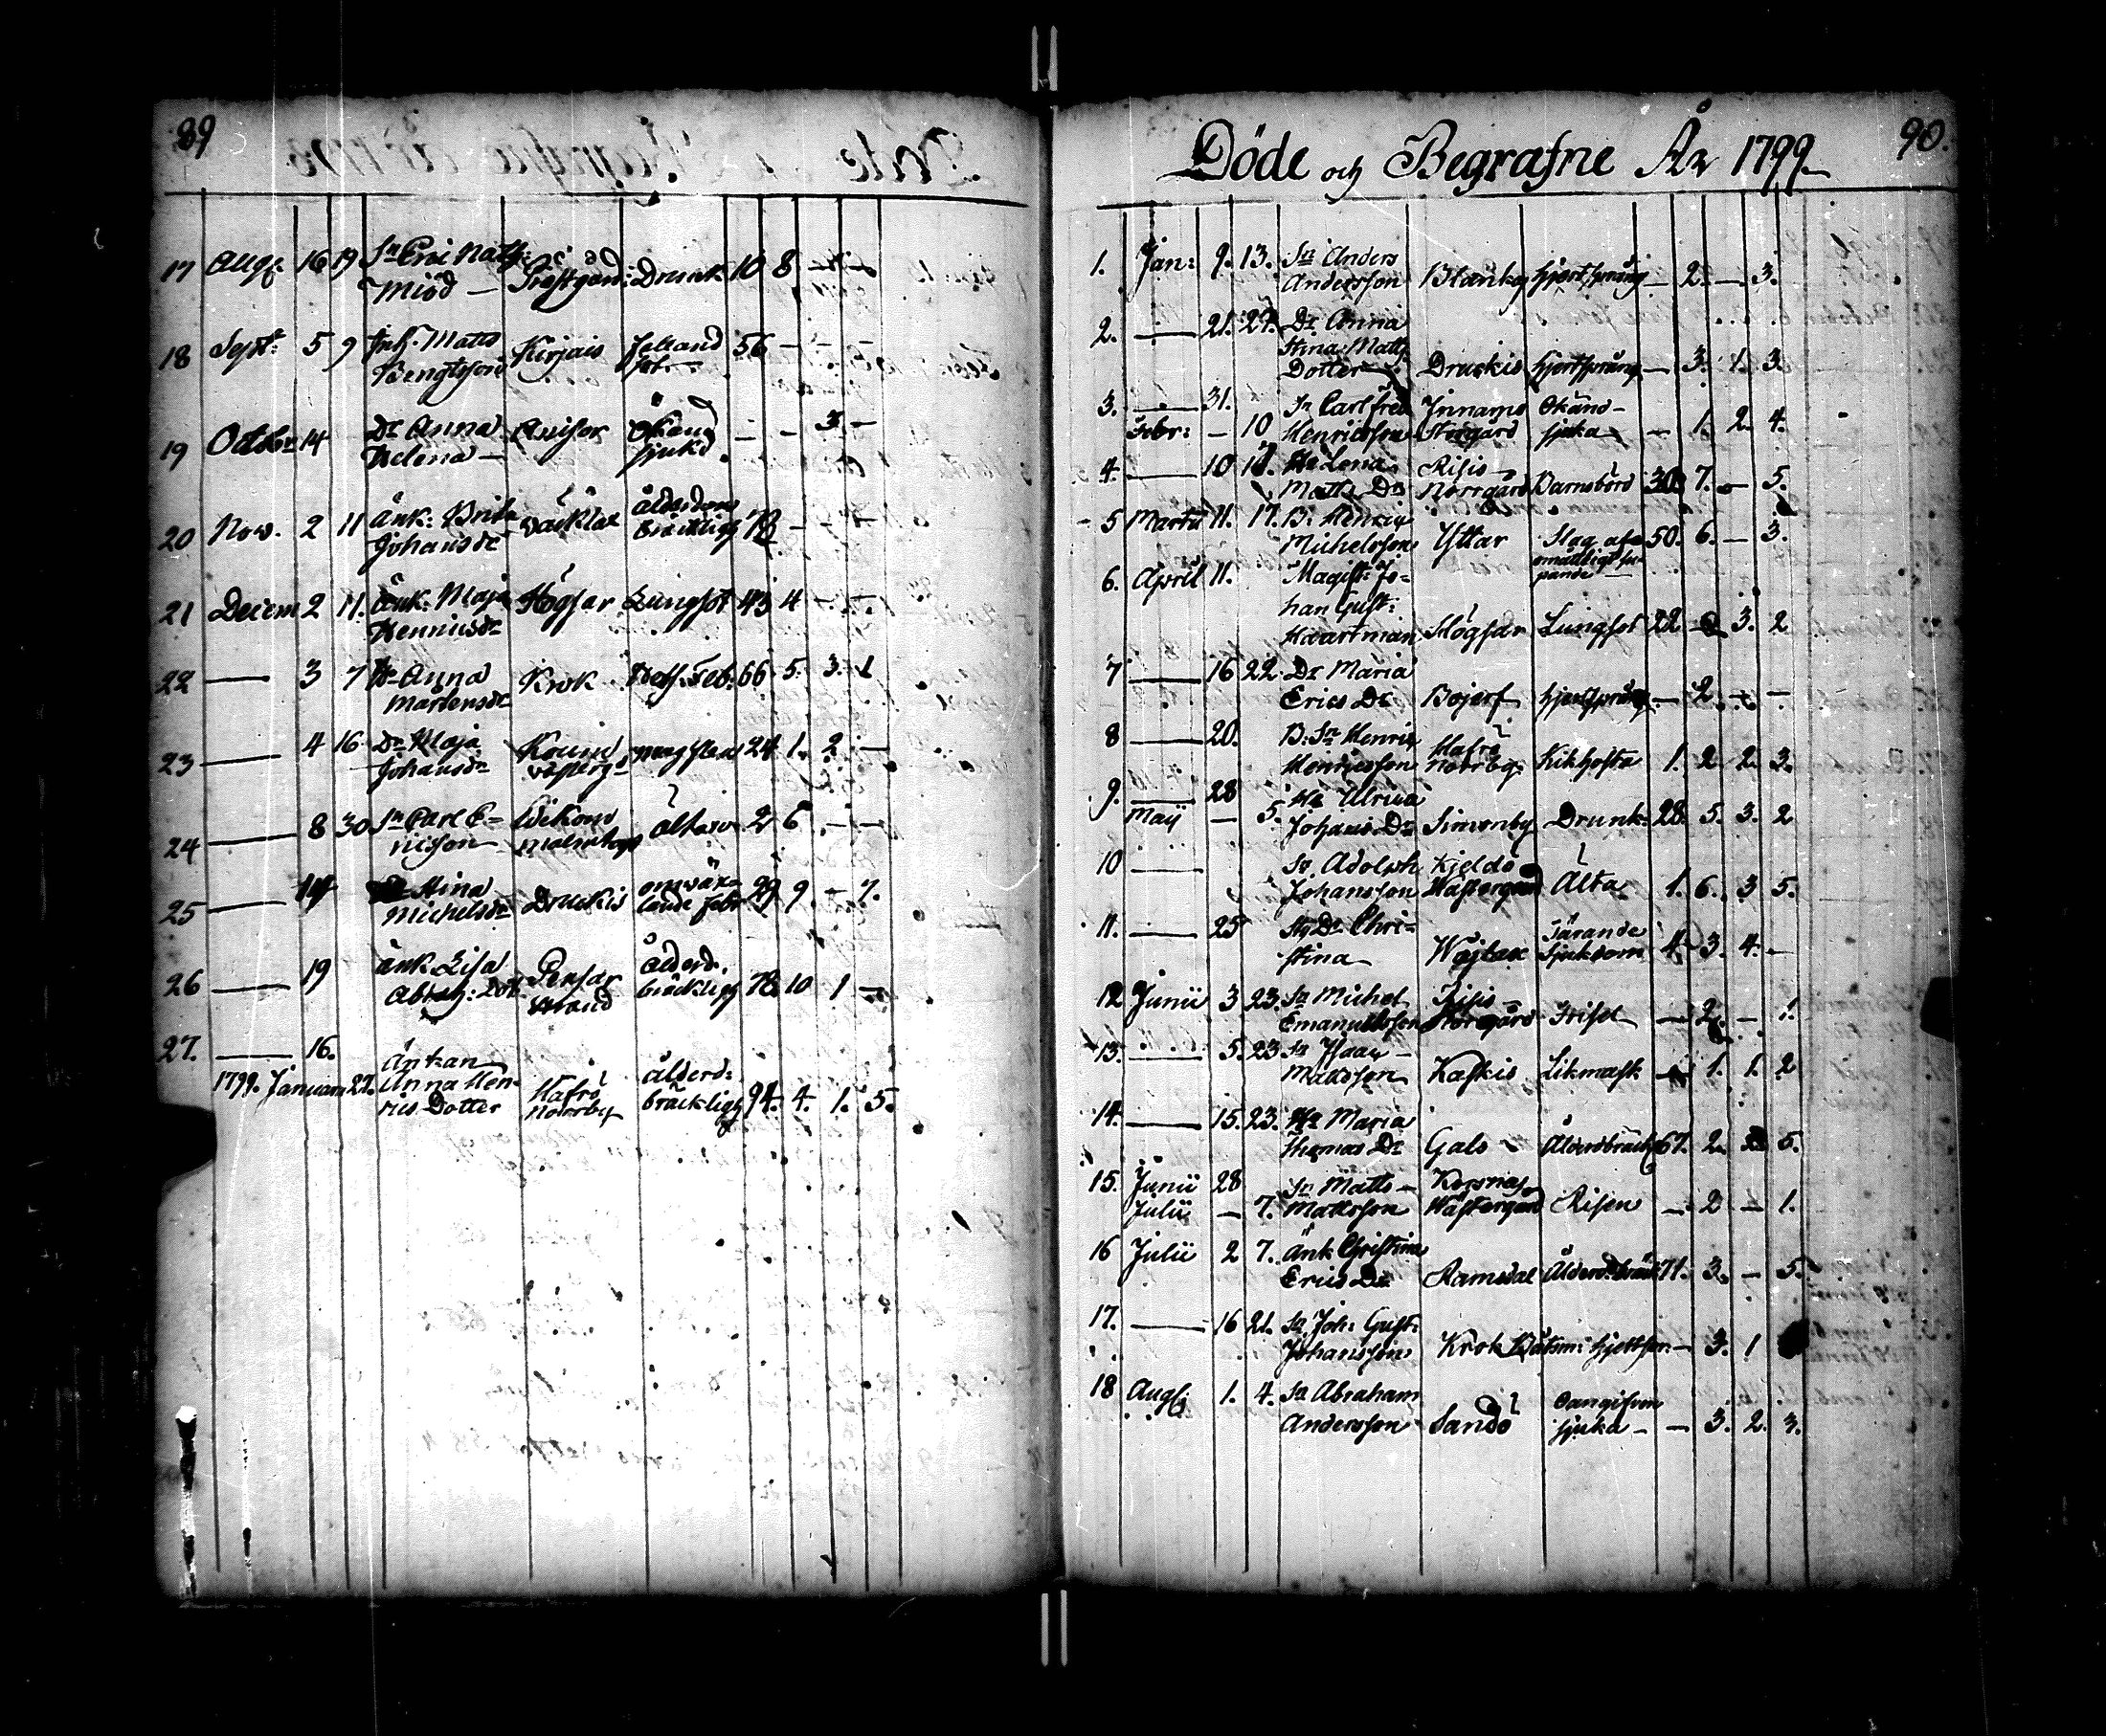 89
17 Aug: 16 19 Sn Eric Matts:
Miöd — Prästgård: Drunk: 10 8 — —
18 Septr: 5 9 Inh. Matts
Bengtsson Kirjais 56 — — —
19 Octobr 14 Dr Anna
Helena — Okänd
sjukd. — — 3. —
20 Nov. 2 11 Änk: Brita
Johansdr ålderdoms
bräcklighet — — —
21 Decem 2 11. Änk: Maja
Henricsdr Högsar Lungsot 43 4 — —
22 — 3 7 Hu Anna
Mårtensdr Krok Feb: 66. 5. 3. 1
23 — 4 16 Dr Maja
Johansdr 24 1. 2. —
24 — 8 30 Sn Carl E=
ricsson Wikom
Malmhop Ålta 2 6 — —
25 — 14 Stina
Michelsdr Druckis omväx=
lande febr 29 9. — 7.
26 — 19 änk Lisa
Abrah: Dotr Pensar
strand Ålderd.
bräcklight 78. 10 1 —
27. — 16. Änkan
1799. Januari 27. Anna Hen=
rics Dotter Hafrö
Norrby ålderd:
bräcklight 94. 4. 1. 5.
90.
Döde och Begrafne År 1799
1. Jan: 9. 13. Sn Anders
Andersson hjertsprång — 2. — 3.
2. — 21. 27. Dr Anna
Stina Matts
Dotter Druckis hjertsprång — 3. 1. 3.
3. — 31. Sn Carl Fred
Febr: — 10 Henricsson Innamo
Storgård Okänd
sjuka — 1. 2. 4.
4. — 10 17. Hu Lena
Matts Dr Risis
Norrgård Barnsbörd 30 7. — 5.
5 Martii 11. 17. B: Henric
Michelsson Yttar Slag af
omåttligt su=
pande 50. 6. — 3.
6. April 11. Magist: Jo=
han Gust:
Haartman Högsar Lungsot 22 — 3. 2
7 — 16 22. Dr Maria
Erics Dr hjertsprång — 2. — —
8 — 20. B: Sn Henric
Henricsson Hafrö
Norrby Kikhosta 1. 2. 2. 3.
9. — 28 Hu Ulrica
Maij — 5. Johans Dr Simonby Drunk: 28. 5. 3. 2
10 — Sn Adolph
Johansson Kjeldö
Wästergård Älta 1. 6. 3 5.
11. — 25 Dr Chri=
stina — Wajlax Tärande
Sjukdom 4. 3. 4. —
12 Junii 3 23. Sn Michel
Emanuelsson Risis
Storgård Frisel — 2. — 1.
13. — 5. 23 Sn Isaac
Mattsson Kaskis Likmask — 1. 1. 2
14. — 15. 23. Hu Maria
Thomas Dr Gals Ålderdbräckl 67. 2. 5.
15. Junii 28 Sn Matts
Julii — 7. Mattsson Korsnäs
Wästergård Risen — 2 — 1.
16 Julii 2 7. änk Christina
Erics Dr Ramsdal Ålderd:bräckl 71. 3. — 5.
17. — 16 21. Sn Joh: Gust:
Johansson Krok Båtsm: hjertspr: — 3. 1
18 Aug: 1. 4. Sn Abraham
Andersson Sandö Oangifven
sjuka — — 3. 2. 3.